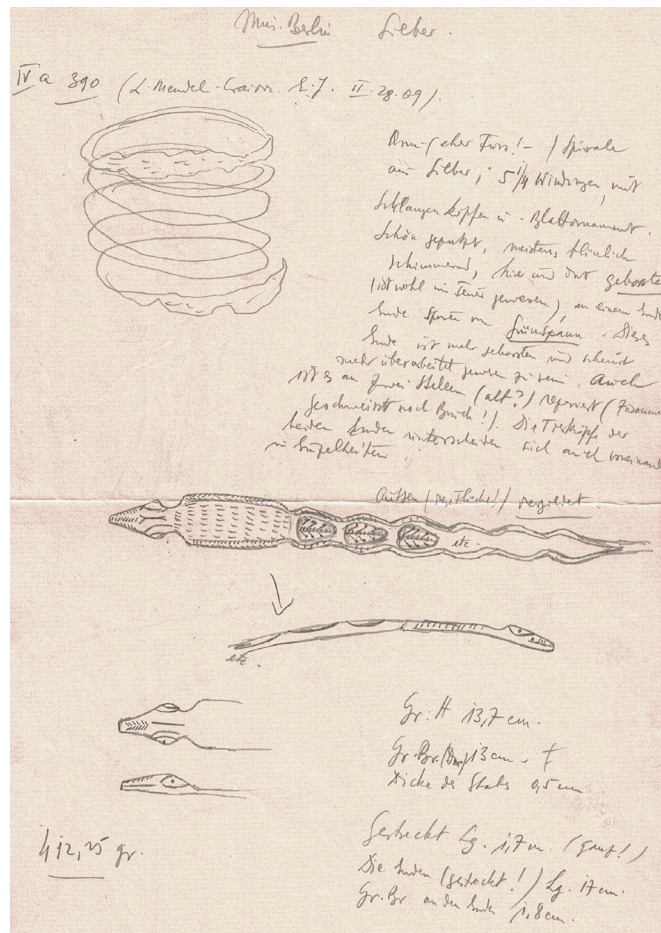 Mus. Berlin Silber.
IV a 390 (L. Mendel- E.J. II.28.09).
Arm- oder Fuss!- / Spirale
aus Silber, 5 1/4 Windungen, mit
Schlangenköpfen u. Blattornament.
Schön geputzt, meistens bläulich
schimmernd, hie und da geborsten
(ist wohl im Feuer gewesen), an einem Ende
Ende Spuren von Grünspann. Dieses
Ende ist mehr geborsten und scheint
mehr überarbeitet gewesen zu sein. Auch
ist es an zwei Stellen (alt?) repariert (zusamm
geschweisst nach Bruch!). Die Tierköpfe der
beiden Enden unterscheiden sich auch voneinand
in Einzelheiten.
Aussen (!) vergoldet
etc.
etc.
Gr. H 13,7 cm.
Gr. Br. (Dm) 13 cm.
Dicke des Stabs 0,5 cm
412,25 gr.
Gestreckt Lg. 1,7 m. (ganz!)
Die Enden (gestreckt!) Lg. 17 cm.
Gr. Br. an der Ende 1,8 cm.